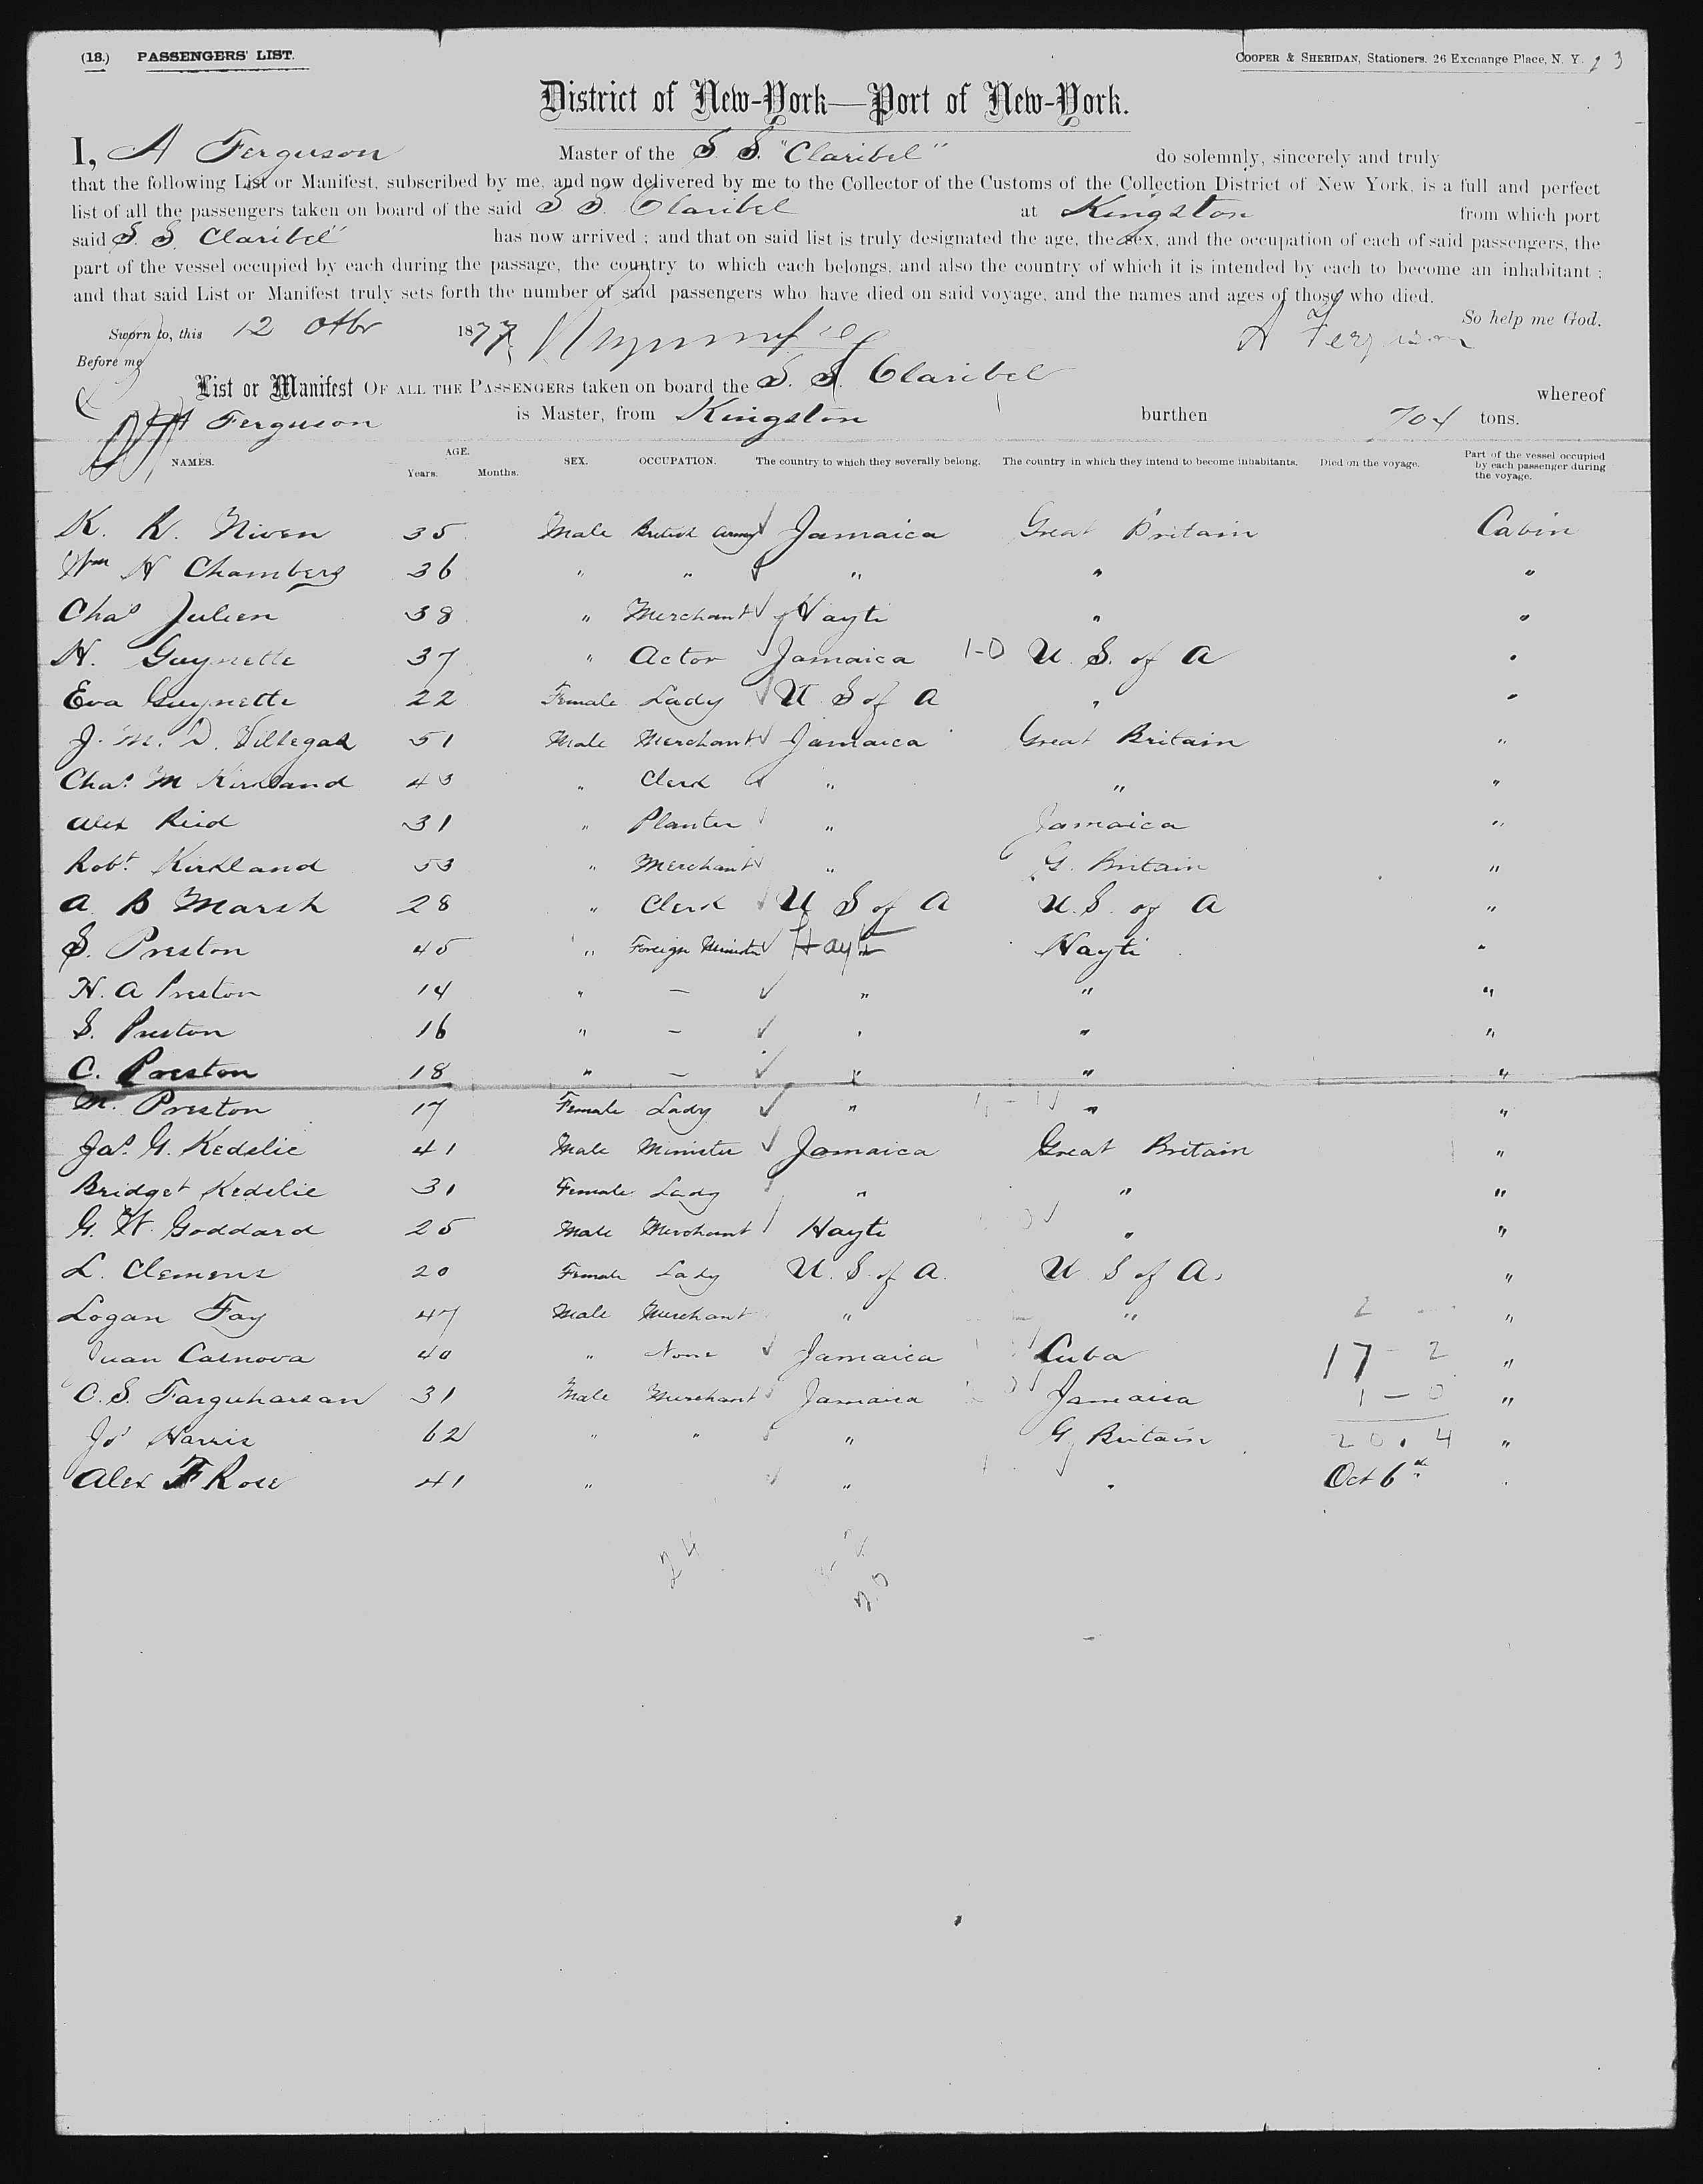 (18.) PASSENGERS' LIST. COOPER & SHERIDAN, Stationers, 26 Exchange Place, N. Y. 23
District of New-York—Port of New-York.
I, A Ferguson Master of the S. S. "Claribel" do solemnly, sincerely and truly
that the following List or Manifest, subscribed by me, and now delivered by me to the Collector of the Customs of the Collection District of New York, is a full and perfect
list of all the passengers taken on board of the said S S. Claribel at Kingston from which port
said S. S. Claribel has now arrived ; and that on said list is truly designated the age, the sex, and the occupation of each of said passengers, the
part of the vessel occupied by each during the passage, the country to which each belongs, and also the country of which it is intended by each to become an inhabitant ;
and that said List or Manifest truly sets forth the number of said passengers who have died on said voyage, and the names and ages of those who died.
So help me God.
Sworn to, this 12 Otbr 1877 A Ferguson
Before me
List or Manifest OF ALL THE PASSENGERS taken on board the S. S. Claribel whereof
A Ferguson is Master, from Kingston burthen 704 tons.
NAMES. AGE. Years. Months. SEX. OCCUPATION. The country to which they severally belong. The country in which they intend to become inhabitants. Died on the voyage. Part of the vessel occupied by each passenger during the voyage.
K. R. Niven 35 Male British Army Jamaica Great Britain Cabin
Wm H Chambers 36 " " " " "
Chas Julien 38 " Merchant Hayti " "
H. Guynette 37 " Actor Jamaica 1-0 U. S. of A "
Eva Guynette 22 Female Lady U S of A " "
J. M. D. Villegas 51 Male Merchant Jamaica Great Britain "
Chas. M Kirkland 43 " Clerk " " "
Alex Reid 31 " Planter " Jamaica "
Robt. Kirkland 53 " Merchant " G. Britain "
A B Marsh 28 " Clerk U S of A U. S. of A "
S. Preston 45 " Foreign Minister Hayti Hayti "
H. A Preston 14 " – " " "
S. Preston 16 " – " " "
C. Preston 18 " – " " "
M. Preston 17 Female Lady " " "
Jas. G. Kedslie 41 Male Minister Jamaica Great Britain "
Bridget Kedslie 31 Female Lady " " "
G. W. Goddard 25 Male Merchant Hayti " "
L. Clemens 20 Female Lady U. S. of A. U S of A. "
Logan Fay 47 Male Merchant " " 2 "
Juan Casnova 40 " None Jamaica Cuba 17 - 2 "
C. S. Farquharsan 31 Male Merchant Jamaica Jamaica 1 – 0 "
Js Harris 62 " " " G. Britain 20. 4 "
Alex F Rose 41 " " " Oct 6th
24
20